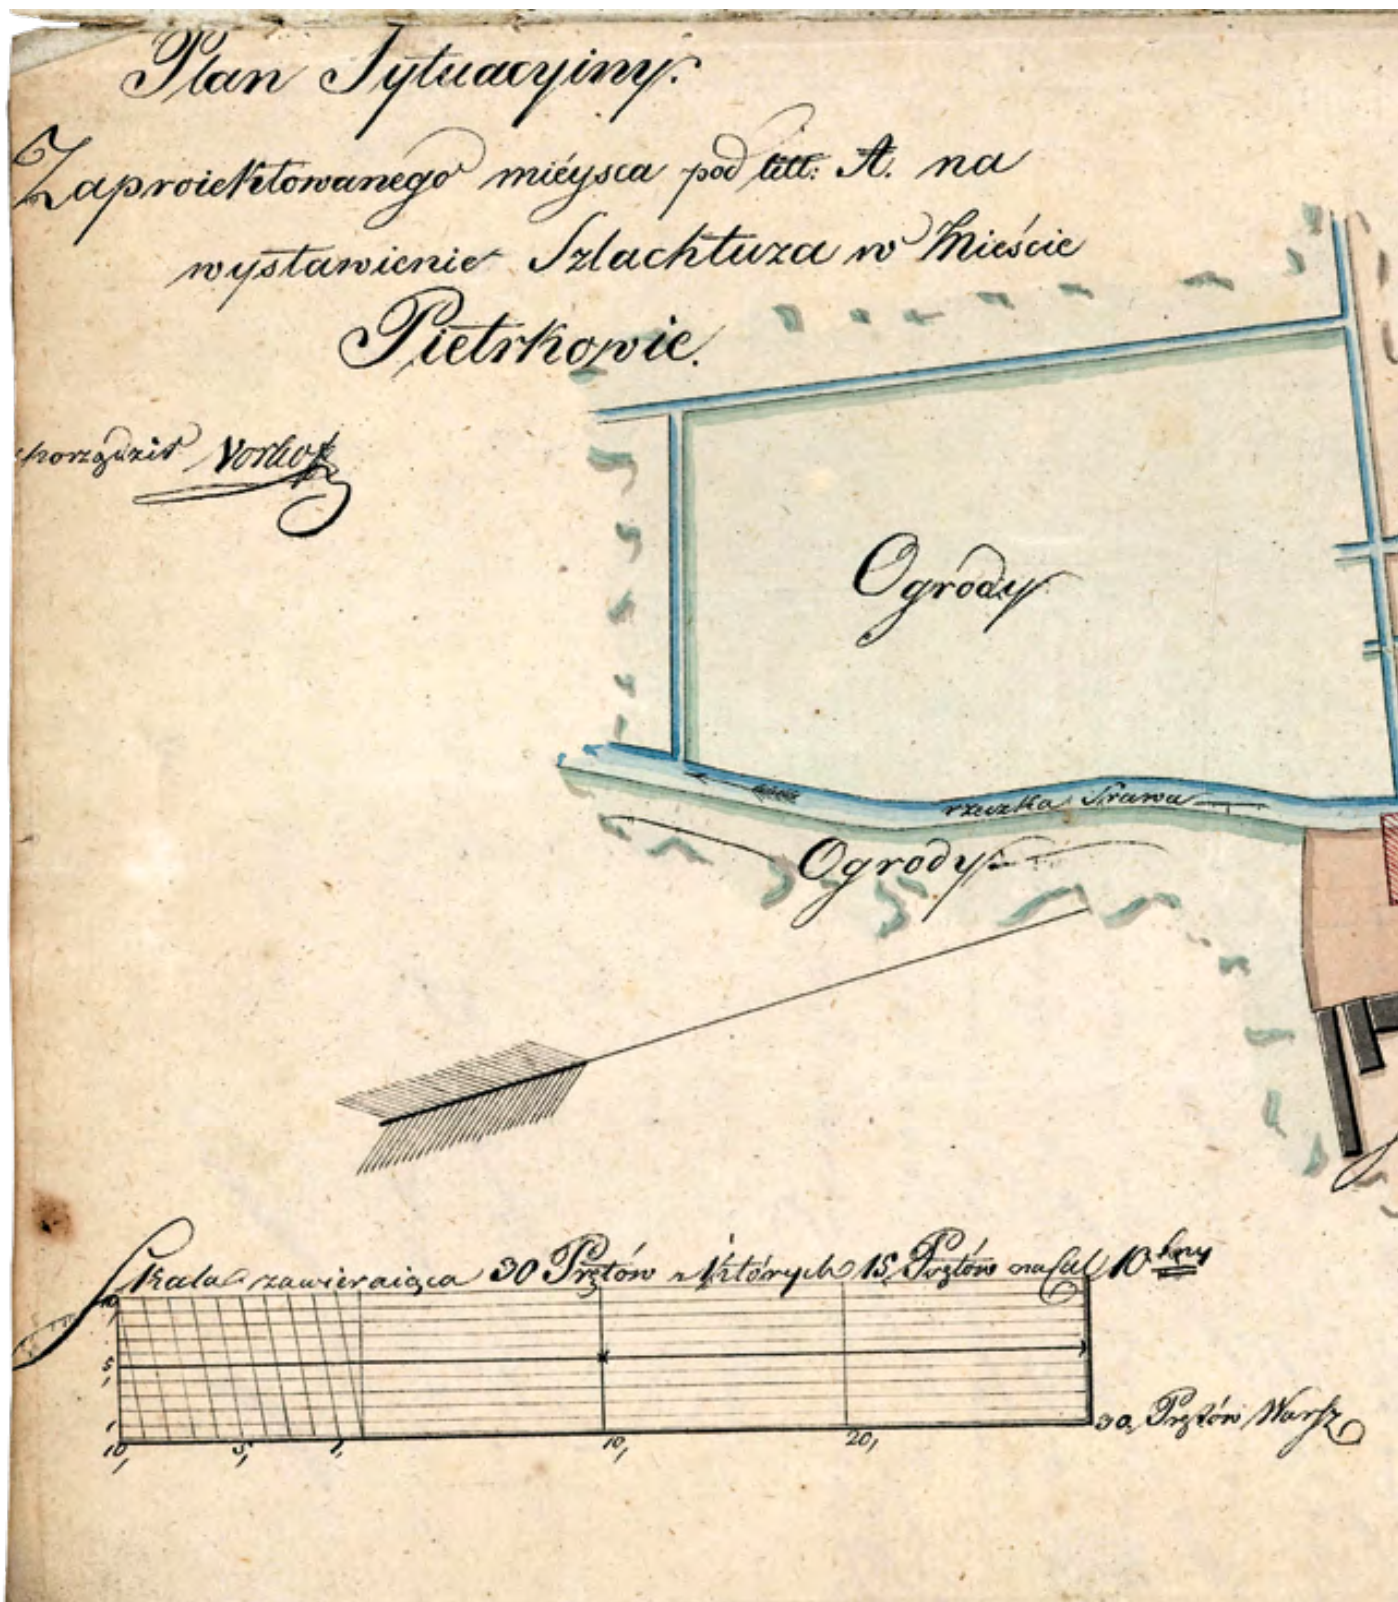 Plan Sytuacyiny.
Zaproiektowanego mieysca pod litt: A. na
wystawienie Szlachtuza w Mieście
Pietrkowie.
sporządził
Ogrody
rzeczka Strawa
Ogrody
Skala zawieraiąca 30 Prętów z których 15 Prętów na Cal 10
10,
5,
1
10, 5, 1, 10, 20, 30, Prętów Warsz